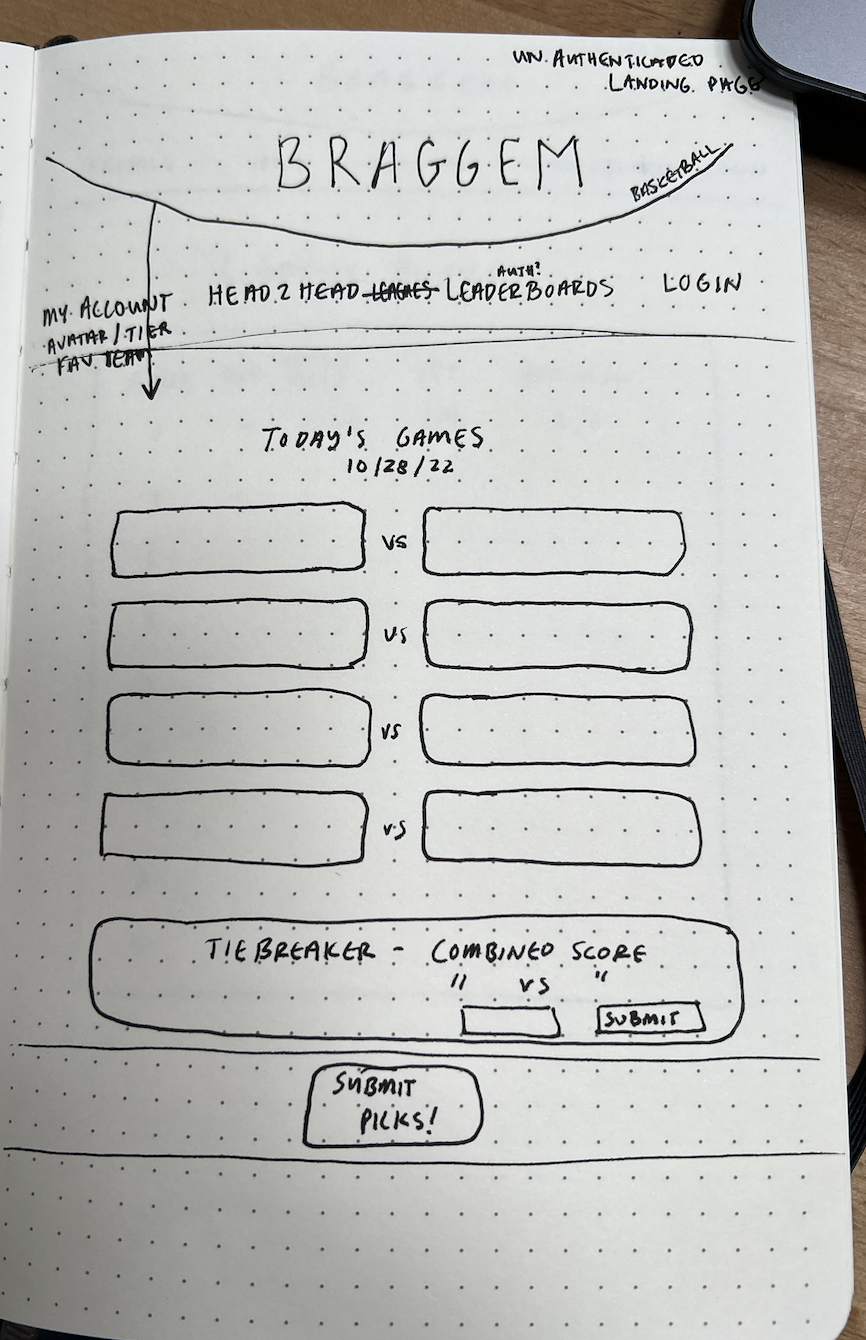 UN AUTHENTICADED
LANDING PAGE
BRAGGEM
BASKETBALL
MY ACCOUNT
AVATAR/TIER
FAV. TEAM
HEAD 2 HEAD LEAGUES LEADERBOARDS LOGIN
AUTH?
TODAY'S GAMES
10/28/22
VS
VS
VS
VS
TIEBREAKER - COMBINED SCORE
" VS "
SUBMIT
SUBMIT
PICKS!